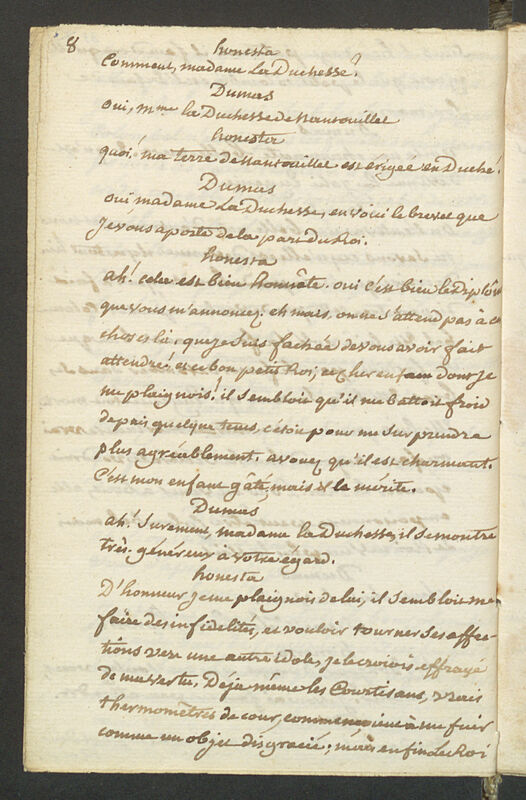 8
honesta
Comment, madame La Duchesse?
Dumas
oui, mme la Duchesse de Nantouillet
honesta
quoi! ma terre de Nantouillet est erigée en Duché!
Dumas
oui, madame La Duchesse, en voici le brevet que
je vous aporte de la part du Roi.
honesta
ah! cela est bien honnête. oui c'est bien le diplôme
que vous m'annoncez. eh mais, on ne s'attend pas à ces
choses là, que je suis fachée de vous avoir fait
attendre! et ce bon petit Roi, ce cher enfant dont je
me plaignois! il sembloit qu'il me battoit froid
depuis quelque tems, c'etoit pour me surprendre
plus agréablement. avouez qu'il est charmant.
C'est mon enfant gâté, mais il le mérite.
Dumas
ah! surement, madame la Duchesse, il se montre
très généreux à votre egard.
honesta
D'honneur je me plaignois de lui, il sembloit me
faire des infidelités, et vouloir tourner ses affec-
tions vers une autre idole, je le croiois effrayé
de ma vertu. Déja même les Courtisans, vrais
thermomètres de cour, commençoient à me fuir
comme un objet disgracié; mais enfin Le Roi